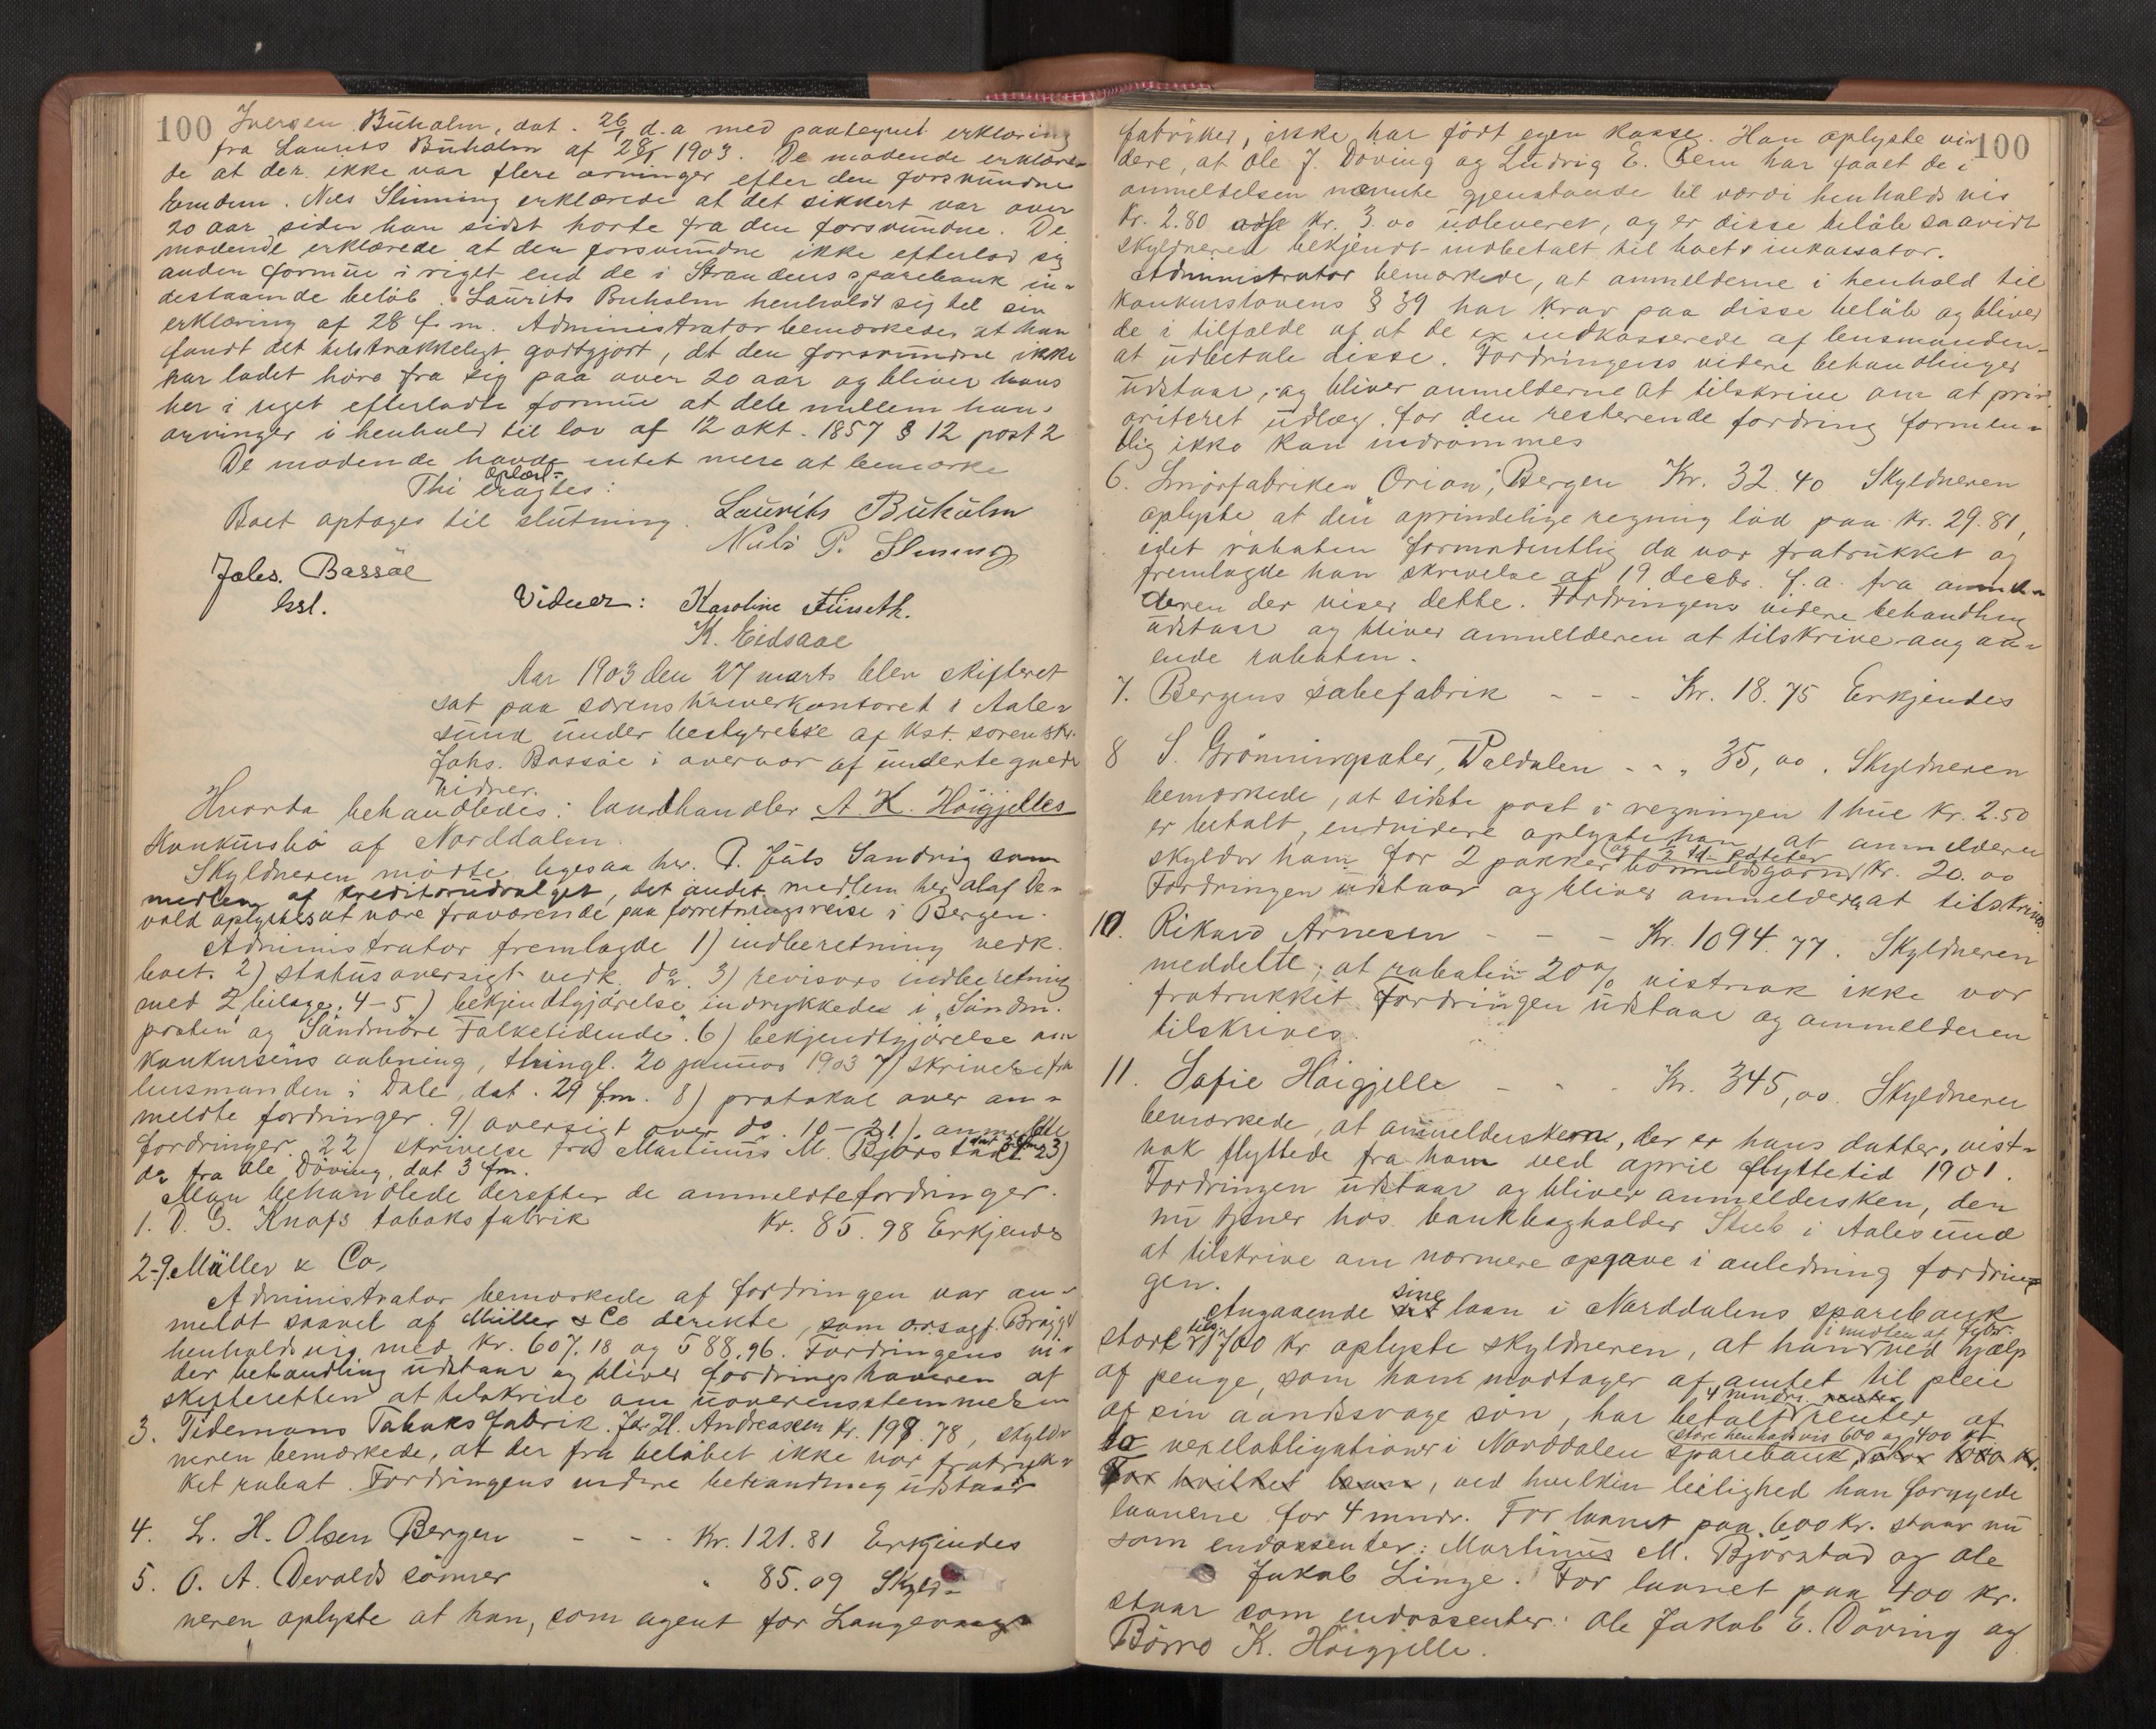 100
Iversen Buholm, dat. 26/1 d.a med paategnet erklæring
fra Laurits Buholm af 28/1 1903. De mødende erklære-
de at der ikke var flere arvinger efter den forsvundne
end dem. Niels Slinning erklærede at det sikkert var over
20 aar siden han sidst hørte fra den forsvundne. De
mødende erklærede at den forsvundne ikke efterlod sig
anden formue i riget end de i Strandens sparebank in-
destaaende beløb. Laurits Buholm henholdt sig til sin
erklæring af 28 f.m. Administrator bemærkede, at han
fandt det tilstrækkeligt godtgjort, at den forsvundne ikke
har ladet høre fra sig paa over 20 aar og bliver hans
her i riget efterladte formue at dele mellem hans
arvinger i henhold til lov af 12 okt. 1857 § 12 post 2
De mødende havde intet mere at bemærke
Oplæst-
Thi eragtes:
Boet optages til slutning. Laurits Buholm
Niels P. Slinning
Johs. Bassöe
kst.
Vidner: Karoline Fürseth.
K. Eidsaae
Aar 1903 den 27 marts blev skifteret
sat paa sorenskriverkontoret i Aale-
sund under bestyrelse af kst. sorenskr.
Johs. Bassöe i overvær af undertegnede
vidner.
Hvorda behandledes: landhandler A. K. Höigjelles
Konkursbo af Norddalen.
Skyldneren mødte, ligesaa hr. P. Juls Sandvig som
medlem af kreditorudvalget, det andet medlem hr. Olaf De-
vold oplystes at være fraværende paa forretningsreise i Bergen.
Administrator fremlagde 1) indberetning vedk.
boet. 2) statusoversigt vedk. do. 3) revisors indberetning
med 2 bilage. 4-5) bekjendtgjørelse indrykkede i "Söndm.
posten" og "Söndmöre Folketidende". 6) bekjendtgjørelse om
konkursens aabning, thingl. 20 januar 1903 7) skrivelse fra
lensmanden i Dale, dat. 29 f.m. 8) protokol over an-
meldte fordringer. 9) oversigt over do. 10-21) anmeldte
fordringer. 22) skrivelse fra Martinus M. Bjørstad 23)
do fra Ole Döving, dat 3 f.m.
Man behandlede derefter de anmeldte fordringer.
1. D. G. Knofs tobaksfabrik Kr. 85.98 Erkjendes
2-9. Müller & Co,
Administrator bemærkede af fordringen var an-
meldt saavel af Müller & Co direkte, som o.r.sagf. Brügg
henholdsvis med Kr. 607.18 og 588.96. Fordringens vi-
der behandling udstaar og bliver fordringshaveren af
skifteretten at tilskrive om uoverensstemmelsen
3. Tidemans Tobaksfabrik. Joh. H. Andreasen Kr. 198.78, skyld-
neren bemærkede, at der fra beløbet ikke var fratruk-
ket rabat. Fordringens videre behandling udstaar
4. L. H. Olsen Bergen - - - Kr. 121.81 Erkjendes
5. O. A. Devolds sønner " 85.09 Skyld-
neren oplyste at han, som agent for Langevaags
100
fabriker, ikke har ført egen kasse. Han oplyste vi-
dere, at Ole J. Döving og Ludvig E. Rem har faaet de i
anmeldelsen nævnte gjenstande til værdi henholdsvis
Kr. 2.80 og Kr. 3.00 udleveret, og er disse beløb saavidt
skyldneren bekjendt indbetalt til boets inkassator.
Administrator bemærkede, at anmelderne i henhold til
Konkurslovens § 39 har krav paa disse beløb og bliver
de i tilfælde af at de er indkasserede af lensmanden
at udbetale disse. Fordringens videre behandlinger
udstaar, og bliver anmelderne at tilskrive om at pri-
oriteret udlæg for den resterende fordring formen-
tlig ikke kan indrømmes
6. Smørfabriken "Orion", Bergen Kr. 32.40 Skyldneren
oplyste at den oprindelige regning lød paa Kr. 29.81,
idet rabatten formodentlig da var fratrukket og
fremlagde han skrivelse af 19 decbr. f.a. fra anmel-
deren der viser dette. Fordringens videre behandling
udstaar og bliver anmelderen at tilskrive angaa-
ende rabatten.
7. Bergens sæbefabrik - - - Kr. 18.75 Erkjendes
8 S. Grönningsæter, Valdalen - - " 35,00. Skyldneren
bemærkede, at sidste post i regningen 1 hue Kr. 2.50
er betalt, endvidere oplyste han at anmelderen
skyldor ham for 2 pakker bomuldsgarn Kr. 20.00
Fordringen udstaar og bliver anmelderen at tilskrive.
10. Rikard Arnesen - - - Kr. 1094.77. Skyldneren
meddelte, at rabatten 20% vistnok ikke var
fratrukket. Fordringen udstaar og anmelderen
tilskrives.
11. Sofie Höigjelle - - - Kr. 345,00. Skyldneren
bemærkede, at anmeldersken, der er hans datter, vist-
nok flyttede fra ham ved april flyttetid 1901.
Fordringen udstaar og bliver anmeldersken, den
nu tjener hos bankbogholder Stub i Aalesund
at tilskrive om nærmere opgave i anledning fordrin-
gen.
Angaaende sine laan i Norddalens sparebank
stort tils. 1700 kr oplyste skyldneren, at han i midten af febr. ved hjælp
af penge, som han modtager af amtet til pleie
af sin aandssvage søn, har betalt 4 mndrs. renter af
to vexelobligationer i Norddalen sparebank, store henholdsvis 600 og 400 kr.
For hvilket laan, ved hvilken leilighed han fornyede
laanene for 4 mndr. For laanet paa 600 kr. staar nu
som endossenter: Martinus M. Bjørstad og Ole
Jakob Linge. For laanet paa 400 kr.
staar som endossenter: Ole Jakob E. Döving og
Börre K. Höigjelle.